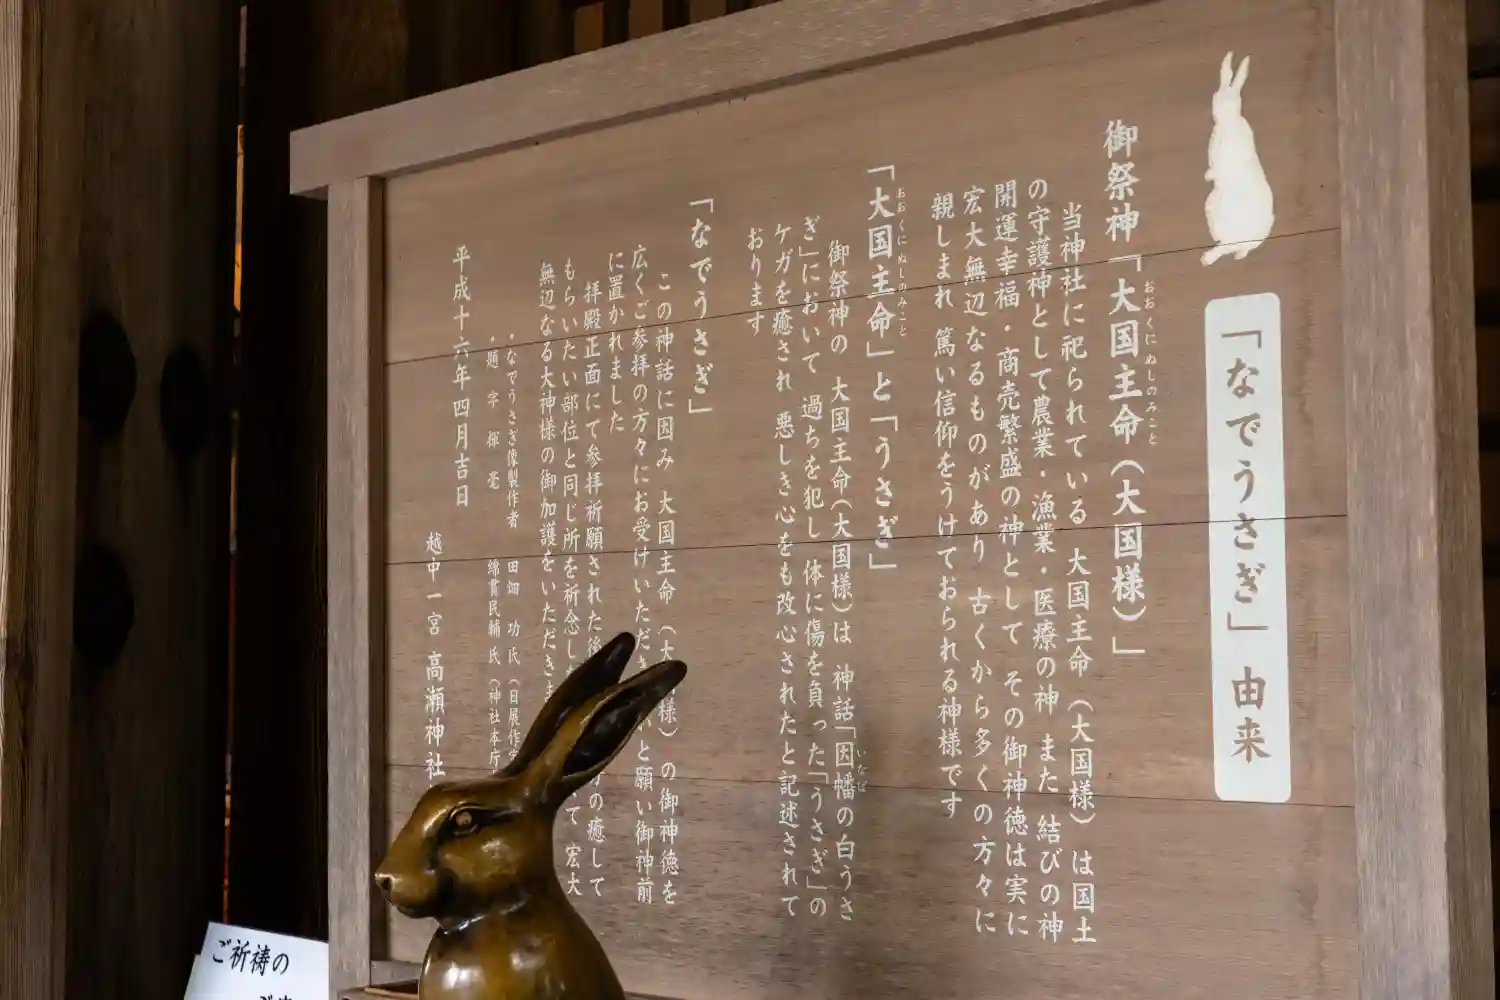 「なでうさぎ」由来
御祭神「大国主命(大国様)」
おおくにぬしのみこと
当神社に祀られている 大国主命(大国様)は国土
の守護神として農業・漁業・医療の神 また 結びの神
開運幸福・商売繁盛の神として その御神徳は実に
宏大無辺なるものがあり 古くから多くの方々に
親しまれ 篤い信仰をうけておられる神様です
「大国主命」と「うさぎ」
おおくにぬしのみこと
御祭神の 大国主命(大国様)は 神話「因幡の白うさ
いなば
ぎ」において 過ちを犯し 体に傷を負った「うさぎ」の
ケガを癒され 悪しき心をも改心されたと記述されて
おります
「なでうさぎ」
この神話に因み 大国主命(大 様)の御神徳を
広くご参拝の方々にお受けいただき と願い御神前
に置かれました
拝殿正面にて参拝祈願された後 の癒して
もらいたい部位と同じ所を祈念し て 宏大
無辺なる大神様の御加護をいただきま
・なでうさぎ像製作者 田畑 功 氏(日展作
・題 字 揮 毫 綿貫民輔 氏(神社本庁
平成十六年四月吉日
越中一宮 高瀬神社
ご祈祷の